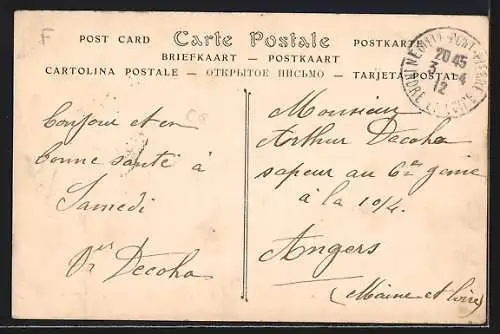 F
POST CARD Carte Postale POSTKARTE
BRIEFKAART — POSTKAART
CARTOLINA POSTALE — ОТКРЫТОЕ ПИСЬМО — TARJETA POSTAL
NEUILLÉ-PONT-PIERRE
20 45
3 - 4
12
INDRE ET LOIRE
C8
Bonjour et en
bonne santé à
Samedi
Decoha
Monsieur
Arthur Decoha
sapeur au 6e génie
à la 10/4.
Angers
(Maine et Loire)